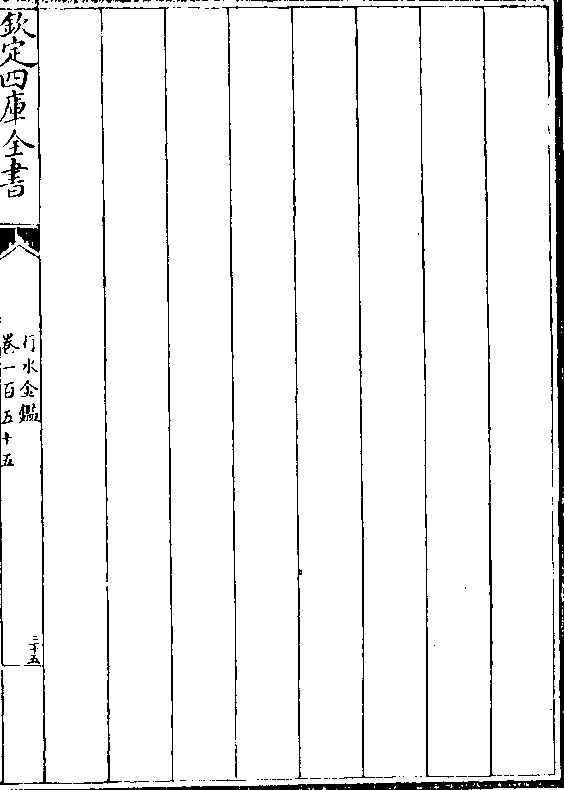 欽定四庫全書
行水金鑑
卷一百五十五
二十五